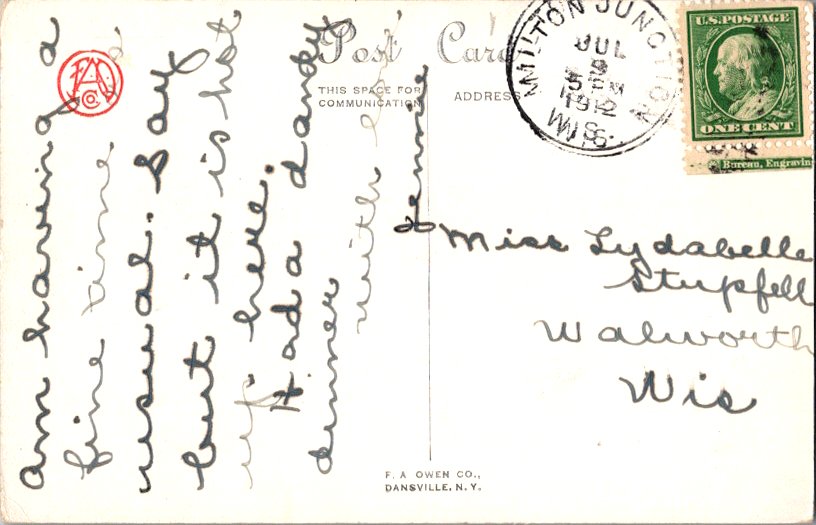 Post Card
THIS SPACE FOR
COMMUNICATION
ADDRESS
MILTON JUNCTION
JUL
9
5 PM
1912
WIS.
U.S. POSTAGE
ONE CENT
Bureau, Engravin
Am having a
fine time as
usual. Say
but it is hot
up here.
Had a dandy
dinner
with
Jennie
Miss Lydabelle
Stupfell
Walworth
Wis
F. A. OWEN CO.,
DANSVILLE, N. Y.